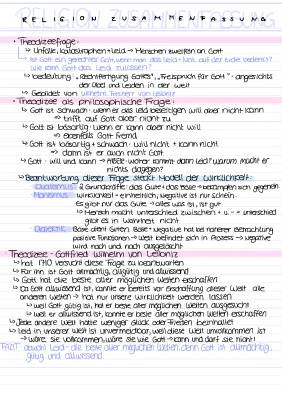 RELIGION ZUSAMMENFASSUNG
• Theodizeefrage:
↳ Unfälle, Katastrophen + Leid → Menschen zweifeln an Gott
↳ Ist Gott ein gerechter Gott, wenn man das Leid + Not auf der Erde bedenkt?
Wie kann Gott das Leid zulassen?
↳ Bedeutung: „Rechtfertigung Gottes", „Freispruch für Gott" · angesichts
der Übel und Leiden in der Welt
↳ Gebildet von Wilhelm Freiherr von Leibniz
• Theodizee als philosophische Frage:
↳ Gott ist schwach: wenn er das Leid beseitigen will aber nicht kann
→ trifft auf Gott aber nicht zu
↳ Gott ist bösartig: wenn er kann aber nicht will
→ ebenfalls Gott fremd
↳ Gott ist bösartig + schwach: will nicht + kann nicht
→ dann ist er auch nicht Gott
↳ Gott: will und kann → Aber: woher kommt dann Leid? Warum macht er
nichts dagegen?
↳ Beantwortung dieser Frage steckt Modell der Wirklichkeit
Dualismus: 2 Grundkräfte: das Gute + das Böse → bekämpfen sich gegenseitig
Monismus: Wirklichkeit = einheitlich, Negative ist nur Schein
Es gibt nur das Gute → alles was ist, ist gut
↳ Mensch macht Unterschied zwischen + u. - → Unterschied
gibt es in Wahrheit nicht
Dialektik: Böse dient Guten, Böse + Negative hat bei näherer Betrachtung
positive Funktionen → Welt befindet sich in Prozess → Negative
wird nach und nach ausgelöscht
Theodizee - Gottfried Wilhelm von Leibniz
↳ hat 1710 versucht diese Frage zu beantworten
↳ Für ihn ist Gott allmächtig, allgütig und allwissend
↳ Gott hat die beste aller möglichen Welten erschaffen
↳ Da Gott allwissend ist, kannte er bereits vor Erschaffung dieser Welt alle
anderen Welten → hat nur unsere Wirklichkeit werden lassen
↳ weil Gott gütig ist, hat er beste aller möglichen Welten ausgesucht
↳ weil er allwissend ist, konnte er beste aller möglichen Welten erschaffen
↳ Jede andere Welt hätte weniger Glück oder Frieden beinhaltet
↳ Leid in unserer Welt ist unvermeidbar, weil diese Welt unvollkommen ist
→ wäre sie vollkommen, wäre sie wie Gott → kann und darf sie nicht!
FAZIT: obwohl Leid - die beste aller möglichen Welten, denn Gott ist allmächtig,
gütig und allwissend